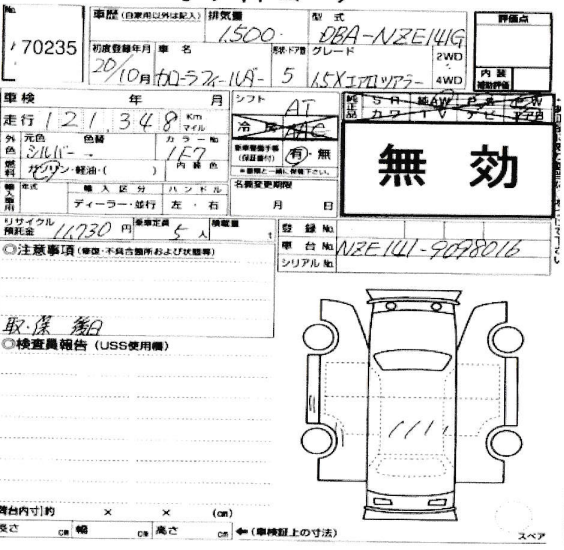 No.
70235
車歴 (自家用以外は記入) 排気量 1,500 型式 DBA-NZE141G 評価点
初度登録年月 20/10月 車名 カローラフィールダー 形状・ドア数 5 グレード 1.5Xエアロツアラー 2WD 4WD
内装 補助評価
車検 年 月
シフト AT
走行 121,348 Km マイル
冷房 AAC
純正品 SR 純AW PS PW
カワ TV ナビ エアB
外色 元色 シルバー 色替 カラーNo 1E7
燃料 ガソリン・軽油・( ) 内装色
新車整備手帳 (保証書付) 有・無
*書類と一緒に保管下さい。
無効
輸入車用 年式 輸入区分 ディーラー・並行 ハンドル 左・右
名義変更期限 月 日
リサイクル預託金 11,730 円 乗車定員 5人 積載量 t
登録No.
車台No. NZE141-9098016
シリアルNo.
◎注意事項 (修復・不具合箇所および状態等)
取・保 後日
◎検査員報告 (USS使用欄)
荷台内寸] 約 × × (cm)
長さ cm 幅 cm 高さ cm ←(車検証上の寸法)
スペア